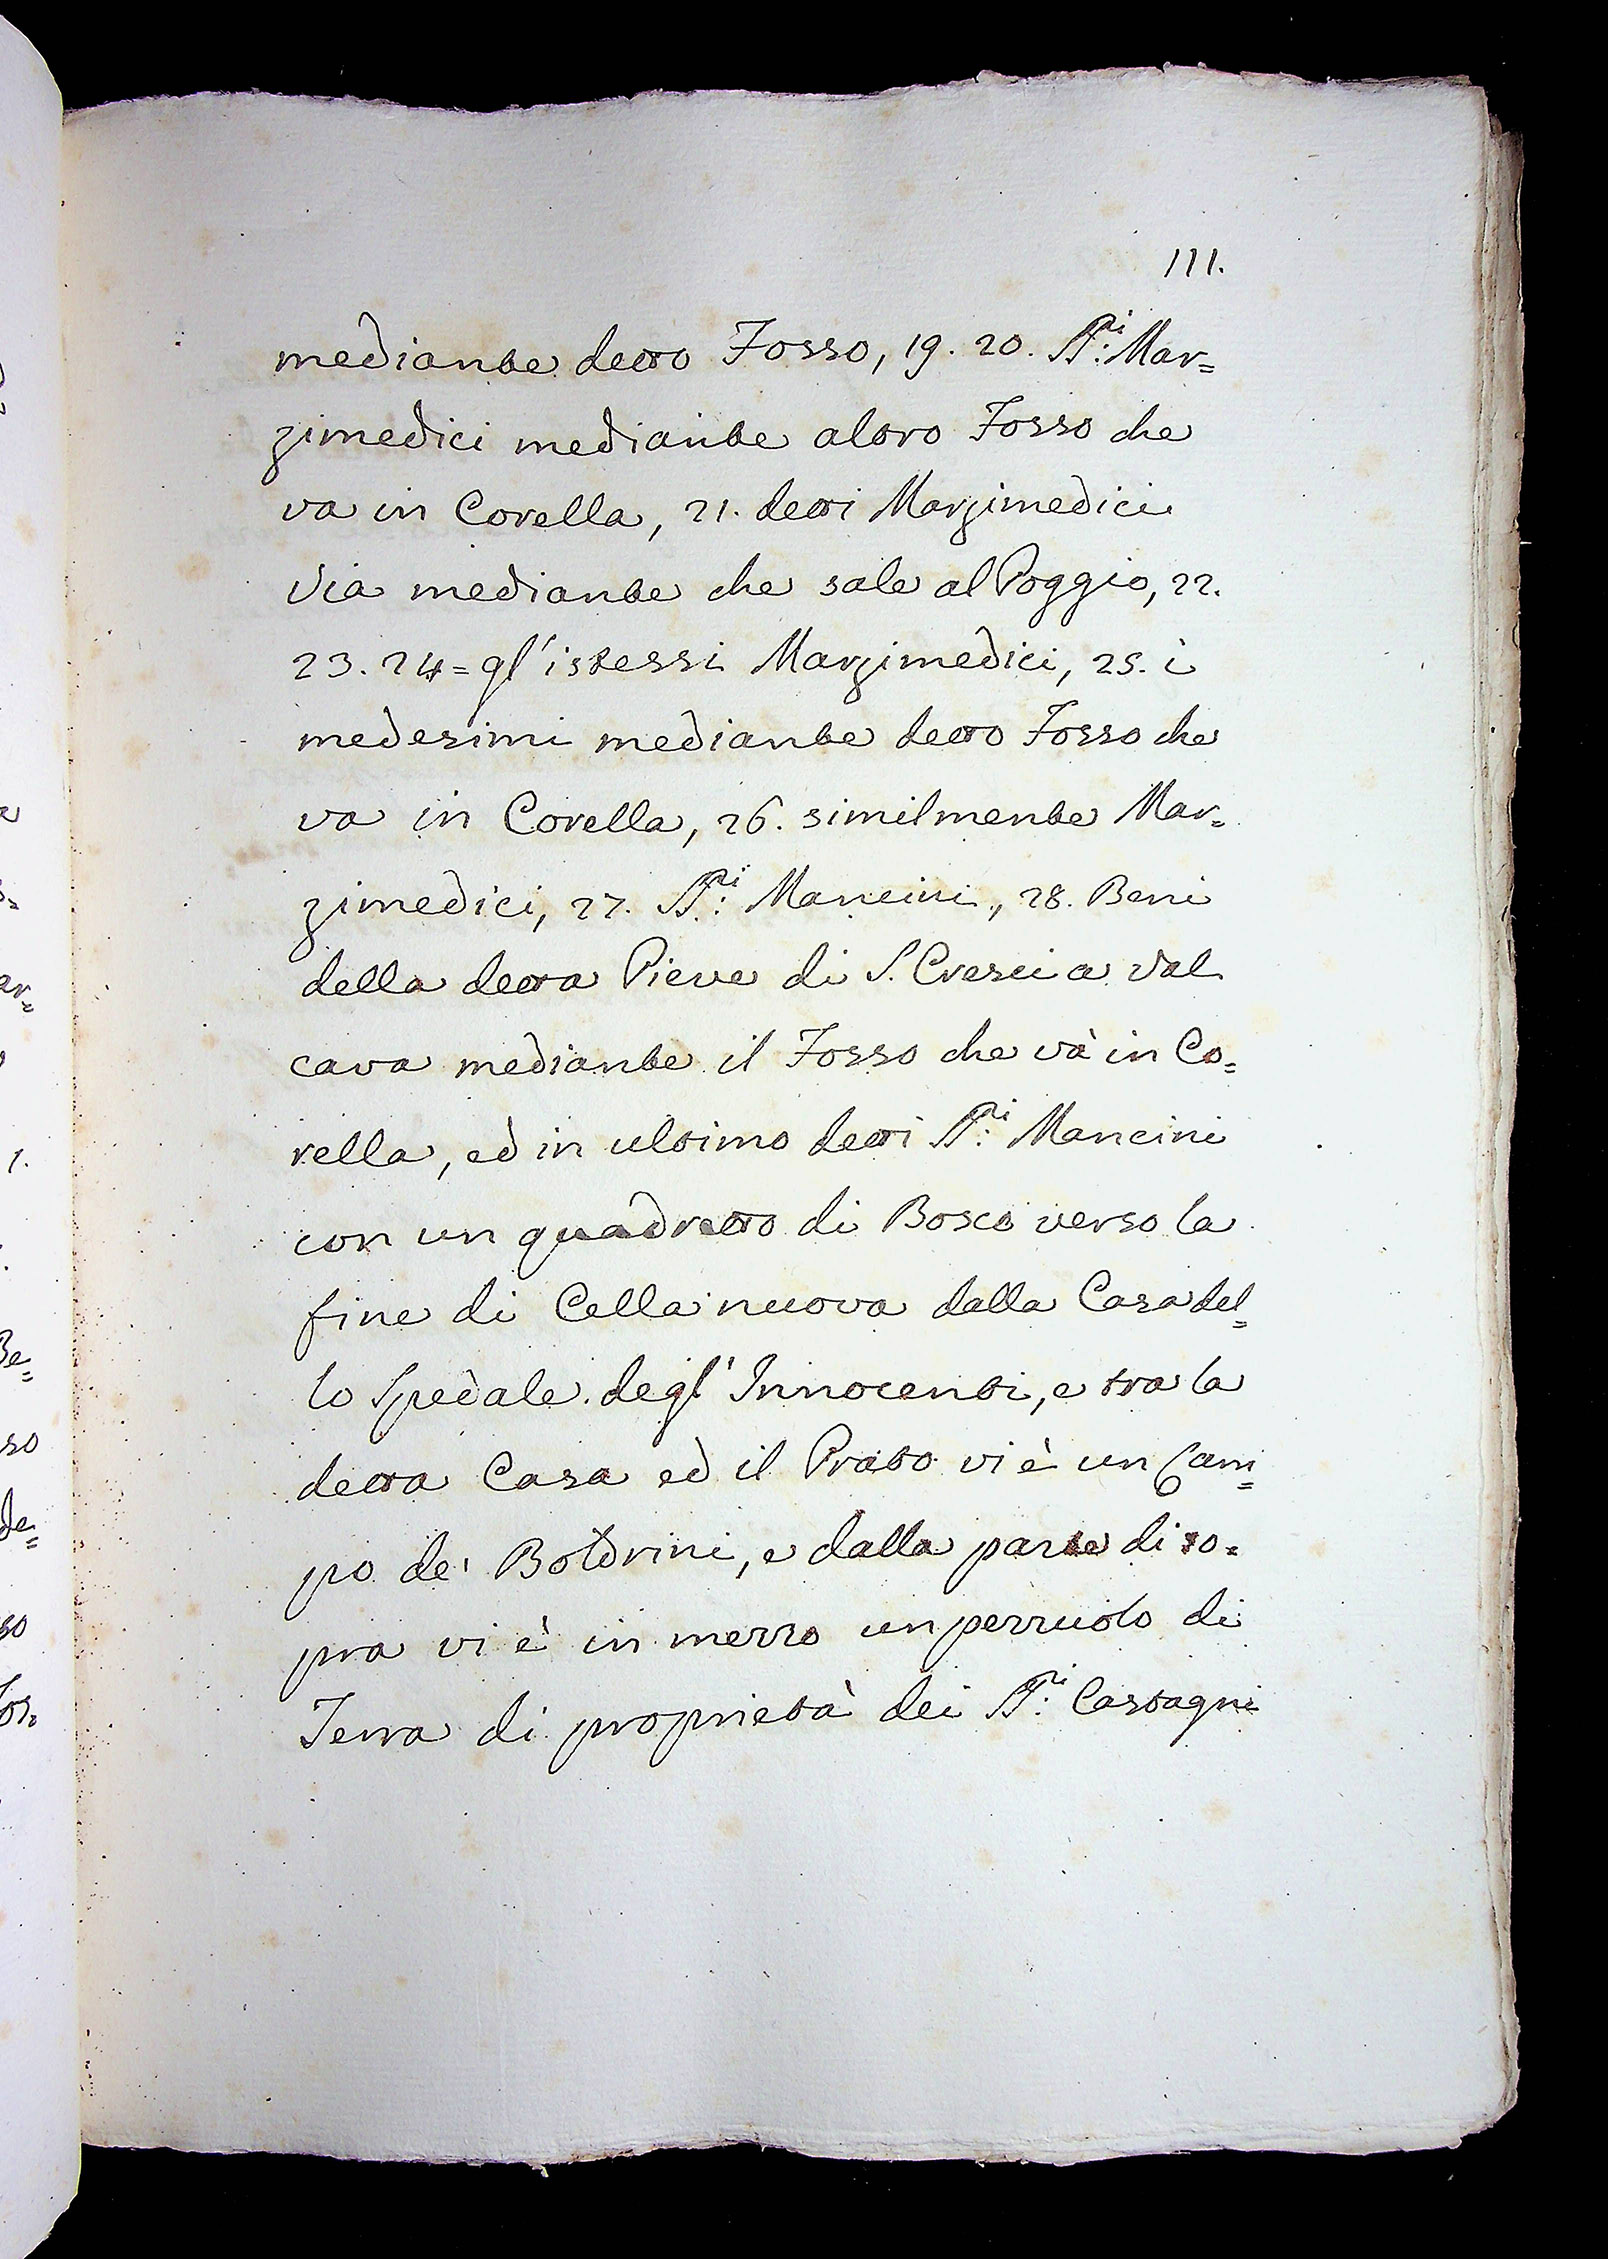 111.
mediante detto Fosso, 19. 20. SS.ri Mar=
zimedici mediante altro Fosso che
va in Corella, 21. detti Marzimedici
Via mediante che sale al Poggio, 22.
23. 24 = gl'istessi Marzimedici, 25. i
medesimi mediante detto Fosso che
va in Corella, 26. similmente Mar=
zimedici, 27. SS.ri Mancini, 28. Beni
della detta Pieve di S. Cresci a Val
cava mediante il Fosso che và in Co=
rella, ed in ultimo detti SS.ri Mancini
con un quadretto di Bosco verso la
fine di Cella nuova dalla Casa del=
lo Spedale degl'Innocenti, e tra la
detta Casa ed il Prato vi è un Cam=
po de' Boldrini, e dalla parte di so=
pra vi è in mezzo un pezzuolo di
Terra di proprietà dei SS.ri Castagni
1.
Be=
so
de=
so